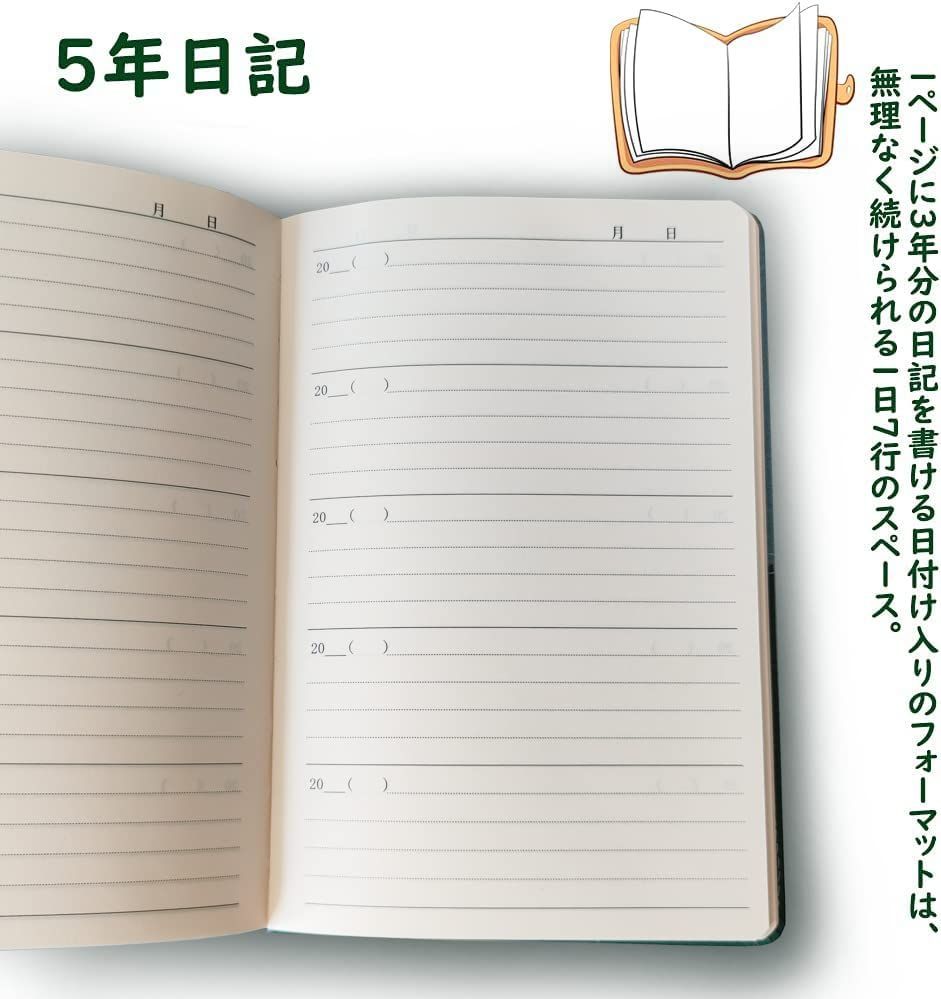 5年日記
一ページに3年分の日記を書ける日付け入りのフォーマットは、
無理なく続けられる一日7行のスペース。
月 日
月 日
20__( )
20__( )
20__( )
20__( )
20__( )